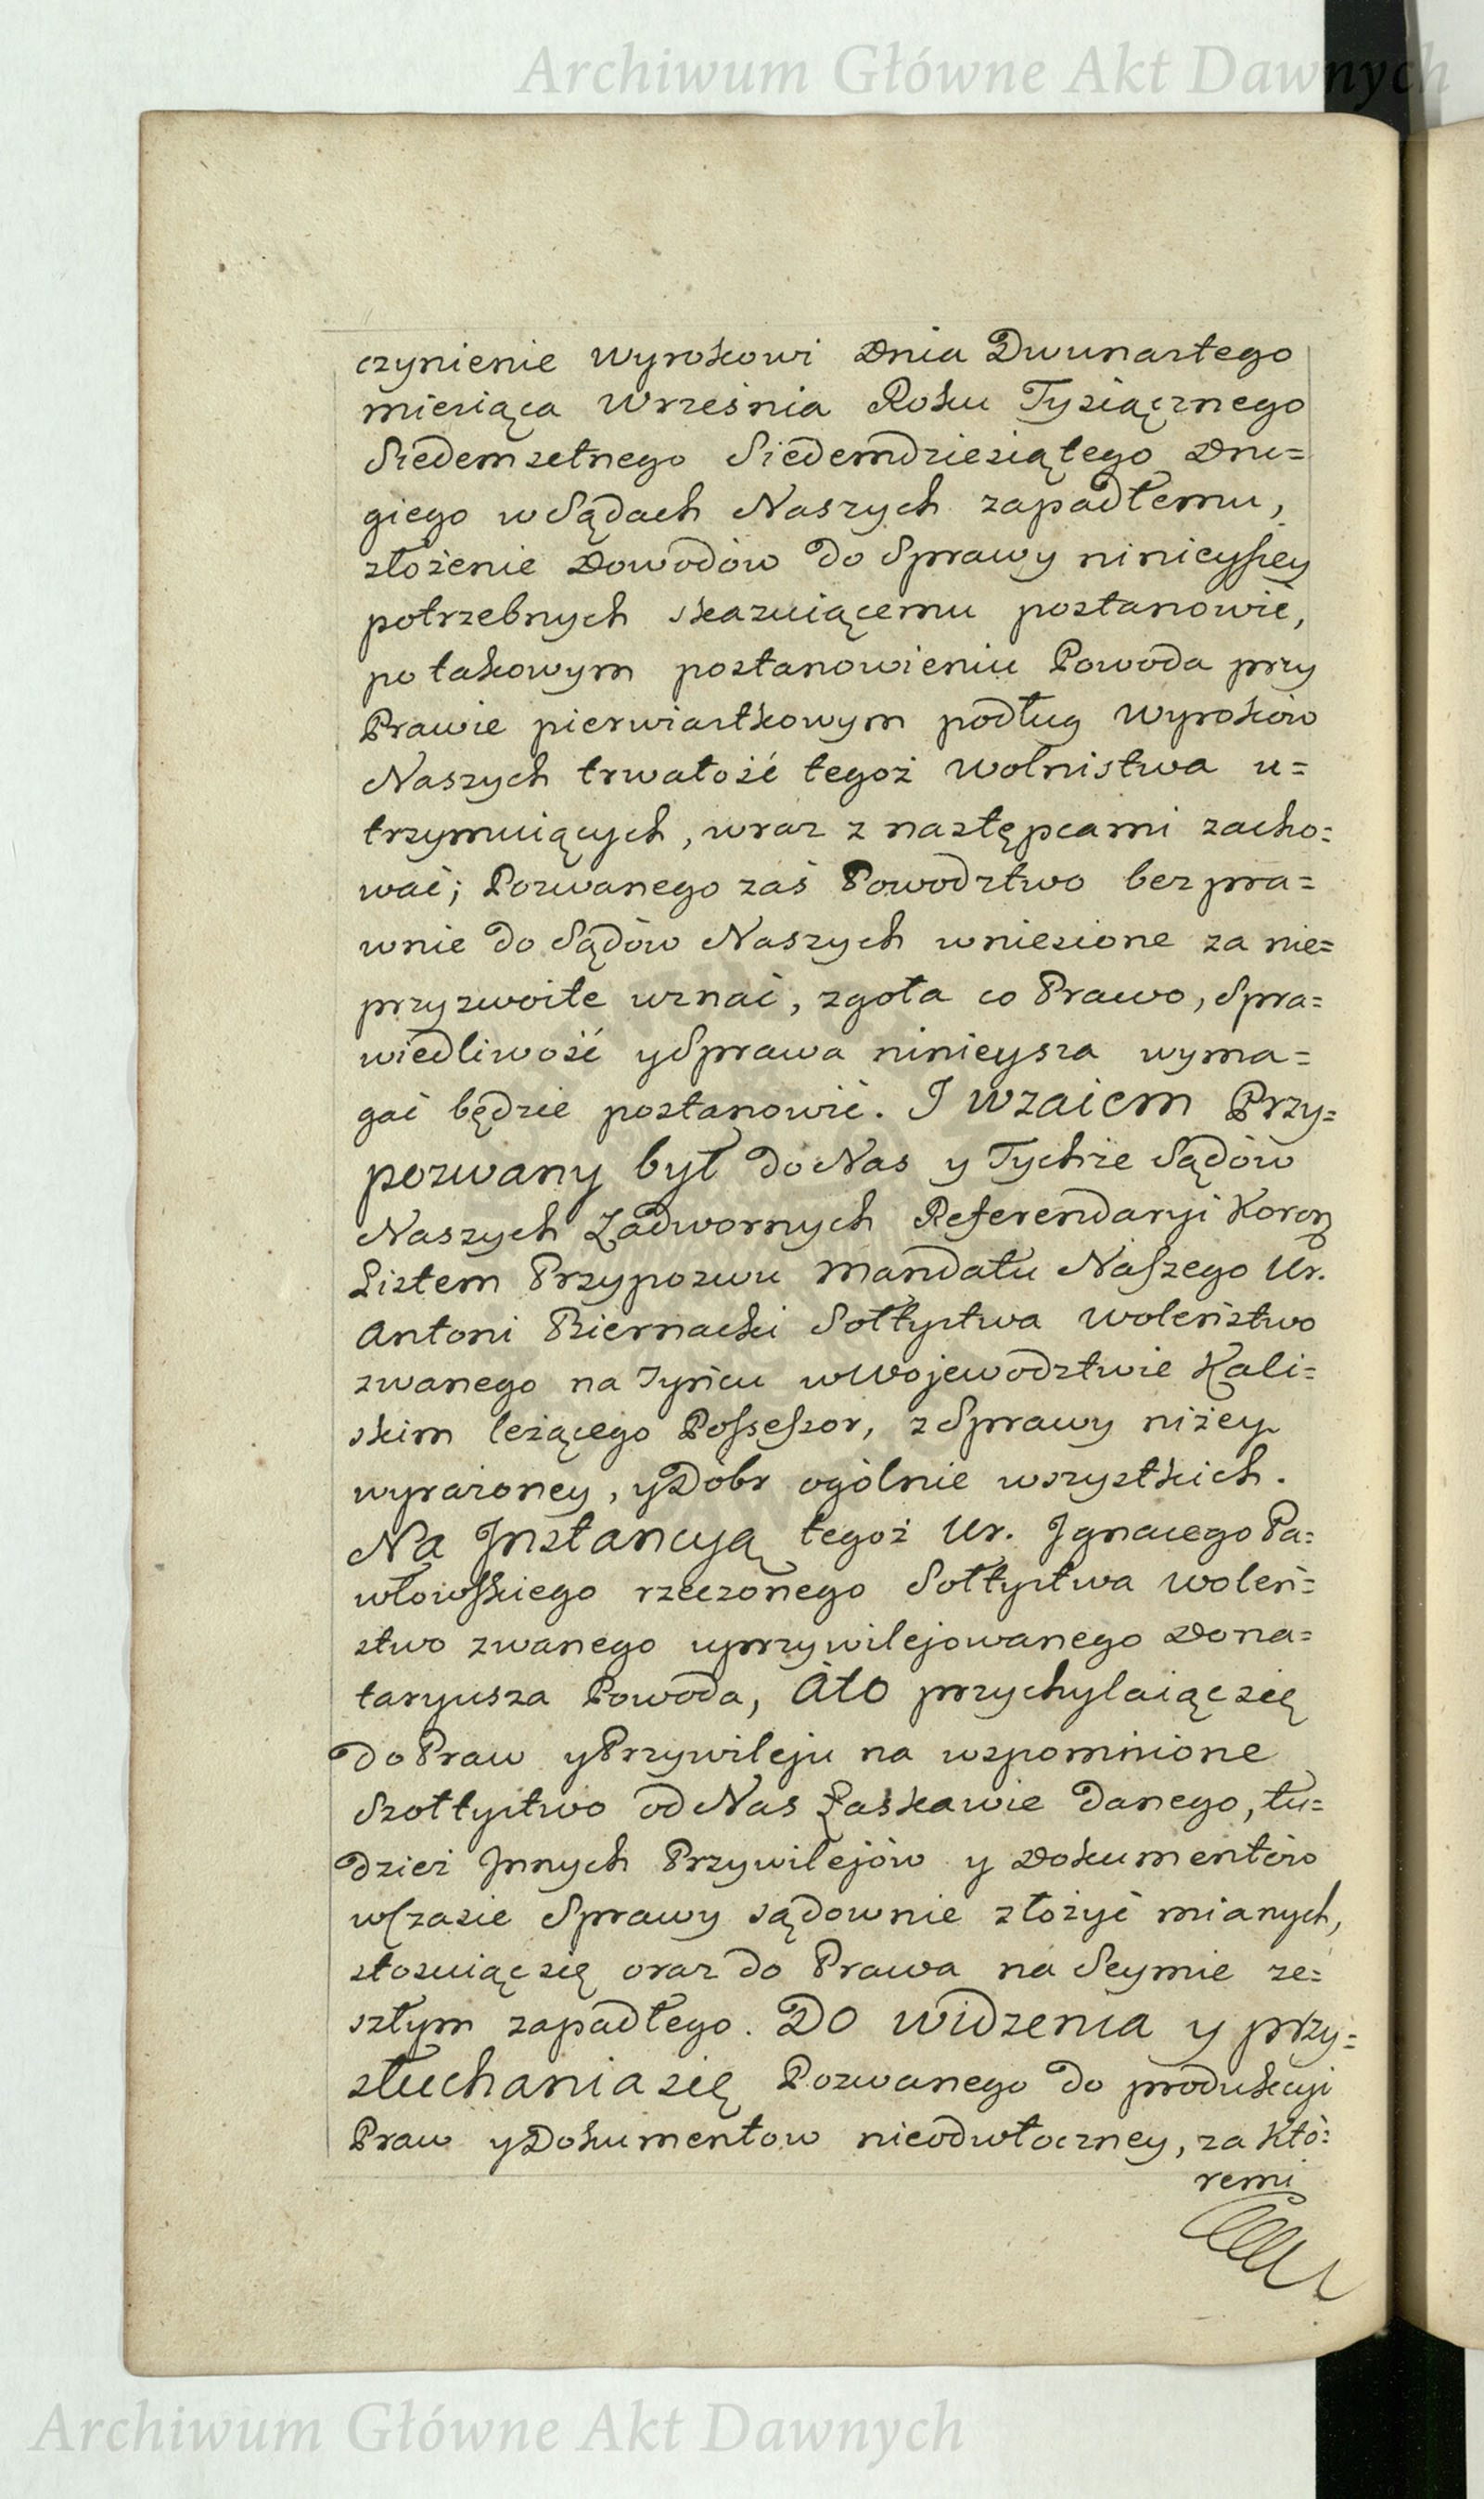 Archiwum Główne Akt Dawnych
czynienie wyrokowi Dnia Dwunastego
miesiąca Września Roku Tysiącznego
Siedemsetnego Siedemdziesiątego Dru=
giego w Sądach Naszych zapadłemu,
złożenie Dowodów do Sprawy ninieyszey
potrzebnych skazuiącemu postanowić,
po takowym postanowieniu Powoda przy
Prawie pierwiastkowym podług Wyroków
Naszych trwałość tegoż Wolnistwa u=
trzymuiących, wraz z następcami zacho=
wać; Pozwanego zaś Powodztwo bezpra=
wnie do Sądów Naszych wniesione za nie=
przyzwoite uznać, zgoła co Prawo, Spra=
wiedliwość y Sprawa ninieysza wyma=
gać będzie postanowić. I wzaiem Przy=
pozwany był do Nas y Tychże Sądów
Naszych Zadwornych Referendaryi Koron
Listem Przypozwu Mandatu Naszego Ur.
Antoni Biernacki Sołtystwa Woleństwo
zwanego na Tyńcu w Województwie Kali=
skim leżącego Possessor, z Sprawy niżey
wyrażoney, y Dóbr ogólnie wszystkich.
Na Jnstancyą tegoż Ur. Jgnacego Pa=
włowskiego rzeczonego Sołtystwa Woleń=
stwo zwanego uprzywilejowanego Dona=
taryusza Powoda, Ato przychylaiąc się
do Praw y Przywileju na wspomnione
Szołtystwo od Nas Łaskawie danego, tu=
dzież Jnnych Przywilejów y Dokumentów
w Czasie Sprawy sądownie złożyć mianych,
stosuiąc się oraz do Prawa na Seymie ze=
szłym zapadłego. Do widzenia y przy=
słuchania się Pozwanego do produkcyi
Praw y Dokumentow nieodwłoczney, za Któ=
remi
Archiwum Główne Akt Dawnych